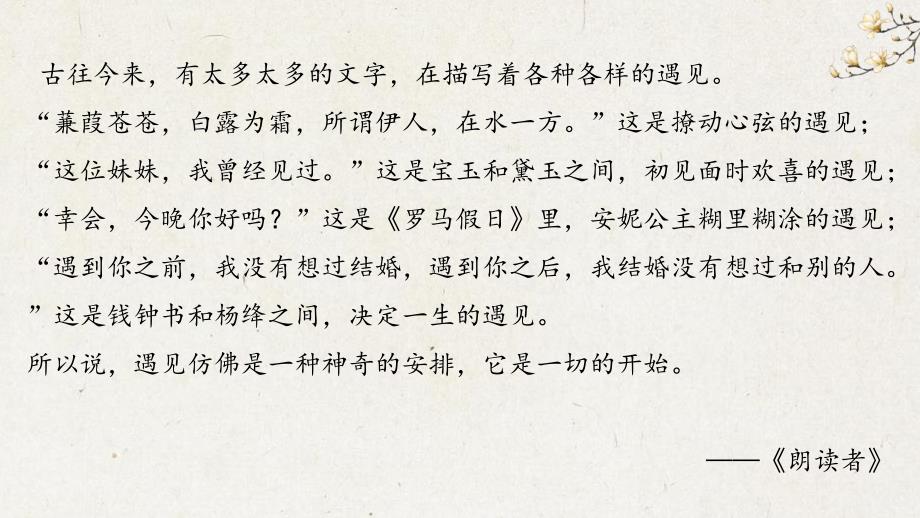 古往今来，有太多太多的文字，在描写着各种各样的遇见。
“蒹葭苍苍，白露为霜，所谓伊人，在水一方。”这是撩动心弦的遇见；
“这位妹妹，我曾经见过。”这是宝玉和黛玉之间，初见面时欢喜的遇见；
“幸会，今晚你好吗？”这是《罗马假日》里，安妮公主糊里糊涂的遇见；
“遇到你之前，我没有想过结婚，遇到你之后，我结婚没有想过和别的人。
”这是钱钟书和杨绛之间，决定一生的遇见。
所以说，遇见仿佛是一种神奇的安排，它是一切的开始。
——《朗读者》